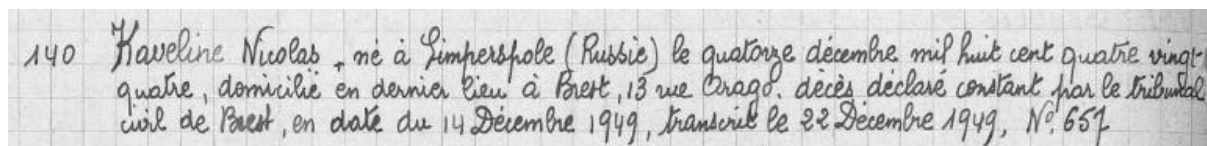 140 Kaveline Nicolas, né à Simperspole (Russie) le quatorze décembre mil huit cent quatre vingt-
quatre, domicilié en dernier lieu à Brest, 13 rue Arago. décès déclaré constant par le tribunal
civil de Brest, en date du 14 Décembre 1949, transcrit le 22 Décembre 1949, N° 657